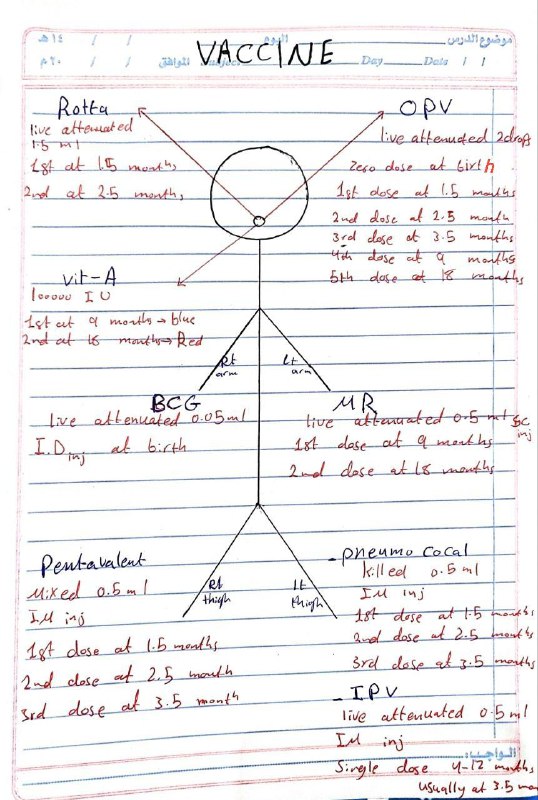 موضوع الدرس
اليوم
١٤ هـ
/ /
VACCINE
Day
Date / /
الموافق
٢٠ م
/ /
Rotta
live attenuated
1.5 ml
1st at 1.5 months
2nd at 2.5 months
OPV
live attenuated 2drops
Zero dose at birth
1st dose at 1.5 months
2nd dose at 2.5 month
3rd dose at 3.5 months
4th dose at 9 months
5th dose at 18 months
vit-A
100000 IU
1st at 9 months → blue
2nd at 18 months → Red
Rt
arm
Lt
arm
BCG
live attenuated 0.05 ml
I.D inj at birth
MR
live attenuated 0.5 ml SC
inj
1st dose at 9 months
2nd dose at 18 months
Pentavalent
Mixed 0.5 ml
IM inj
1st dose at 1.5 months
2nd dose at 2.5 month
3rd dose at 3.5 month
Rt
thigh
Lt
thigh
- pneumo cocal
killed 0.5 ml
IM inj
1st dose at 1.5 months
2nd dose at 2.5 months
3rd dose at 3.5 months
- IPV
live attenuated 0.5 ml
IM inj
Single dose 4-12 months
usually at 3.5 mon
الواجب: